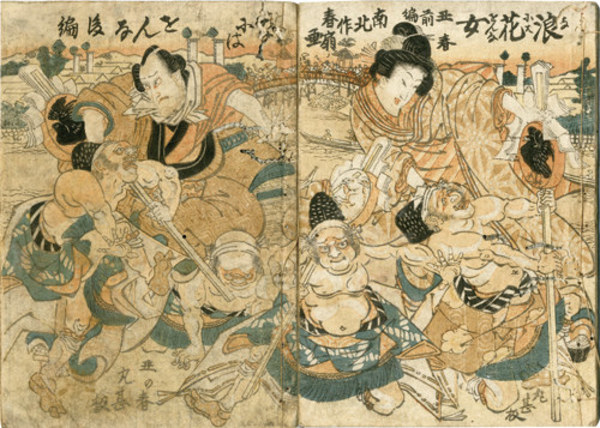 浪花女
丑春
前編
南北作
春扇画
丸甚板
をんな後編
丑の春
丸甚板